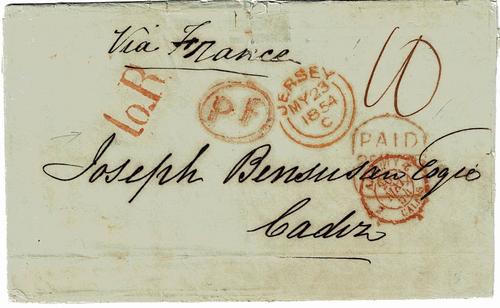 Via France
P.F.
JERSEY
MY 23
1854
C
10
PAID
Joseph Bensusan Esqre
Cadiz
CALAIS